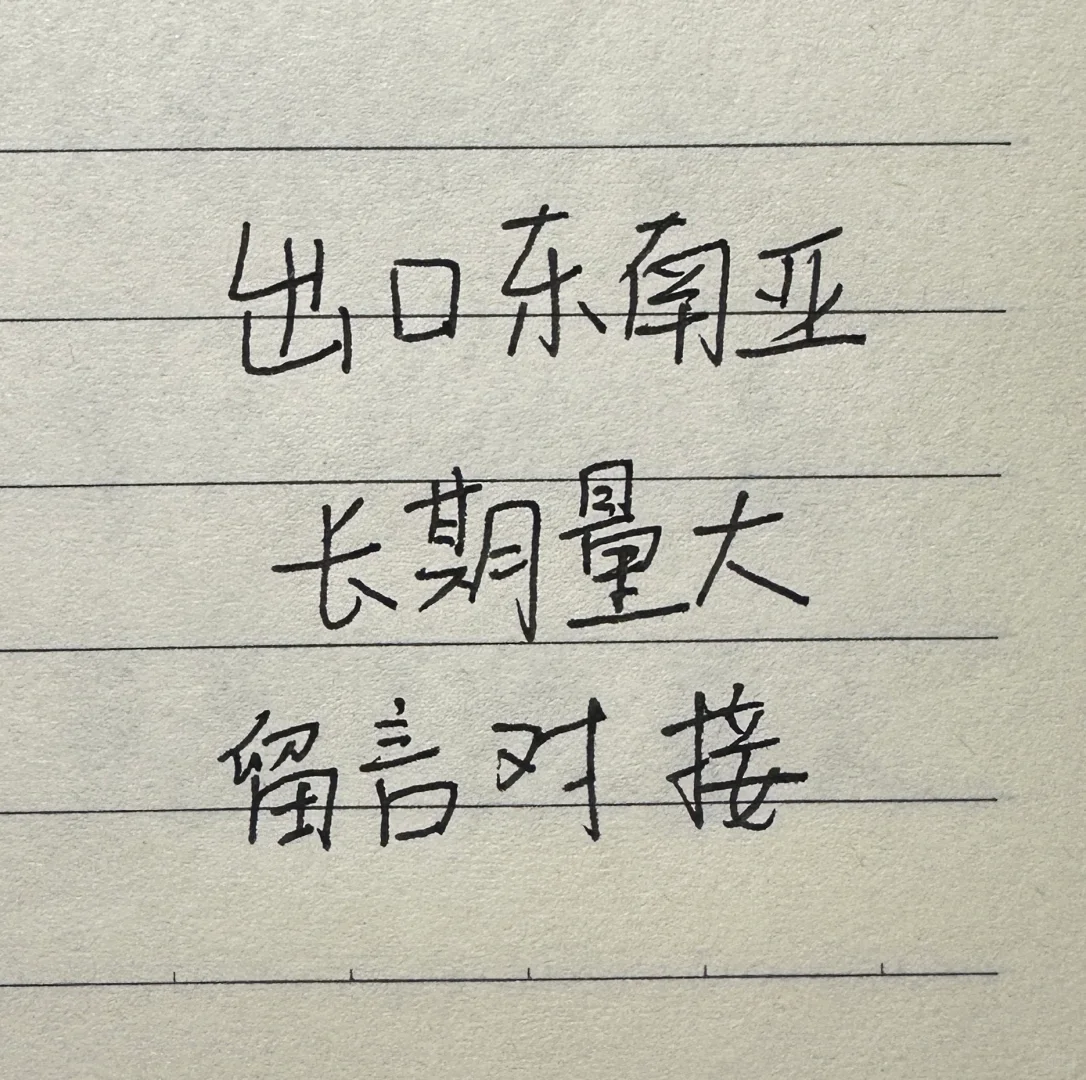 出口东南亚
长期量大
留言对接